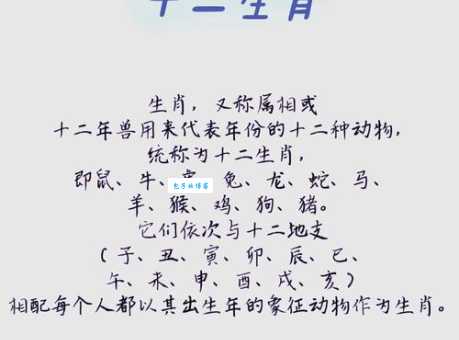 十二生肖
生肖，又称属相或
十二年兽用来代表年份的十二种动物，
统称为十二生肖，
即鼠、牛、 兔、龙、蛇、马、
羊、猴、鸡、狗、猪。
它们依次与十二地支
（子、丑、寅、卯、辰、巳、
午、未、申、酉、戌、亥）
相配每个人都以其出生年的象征动物作为生肖。